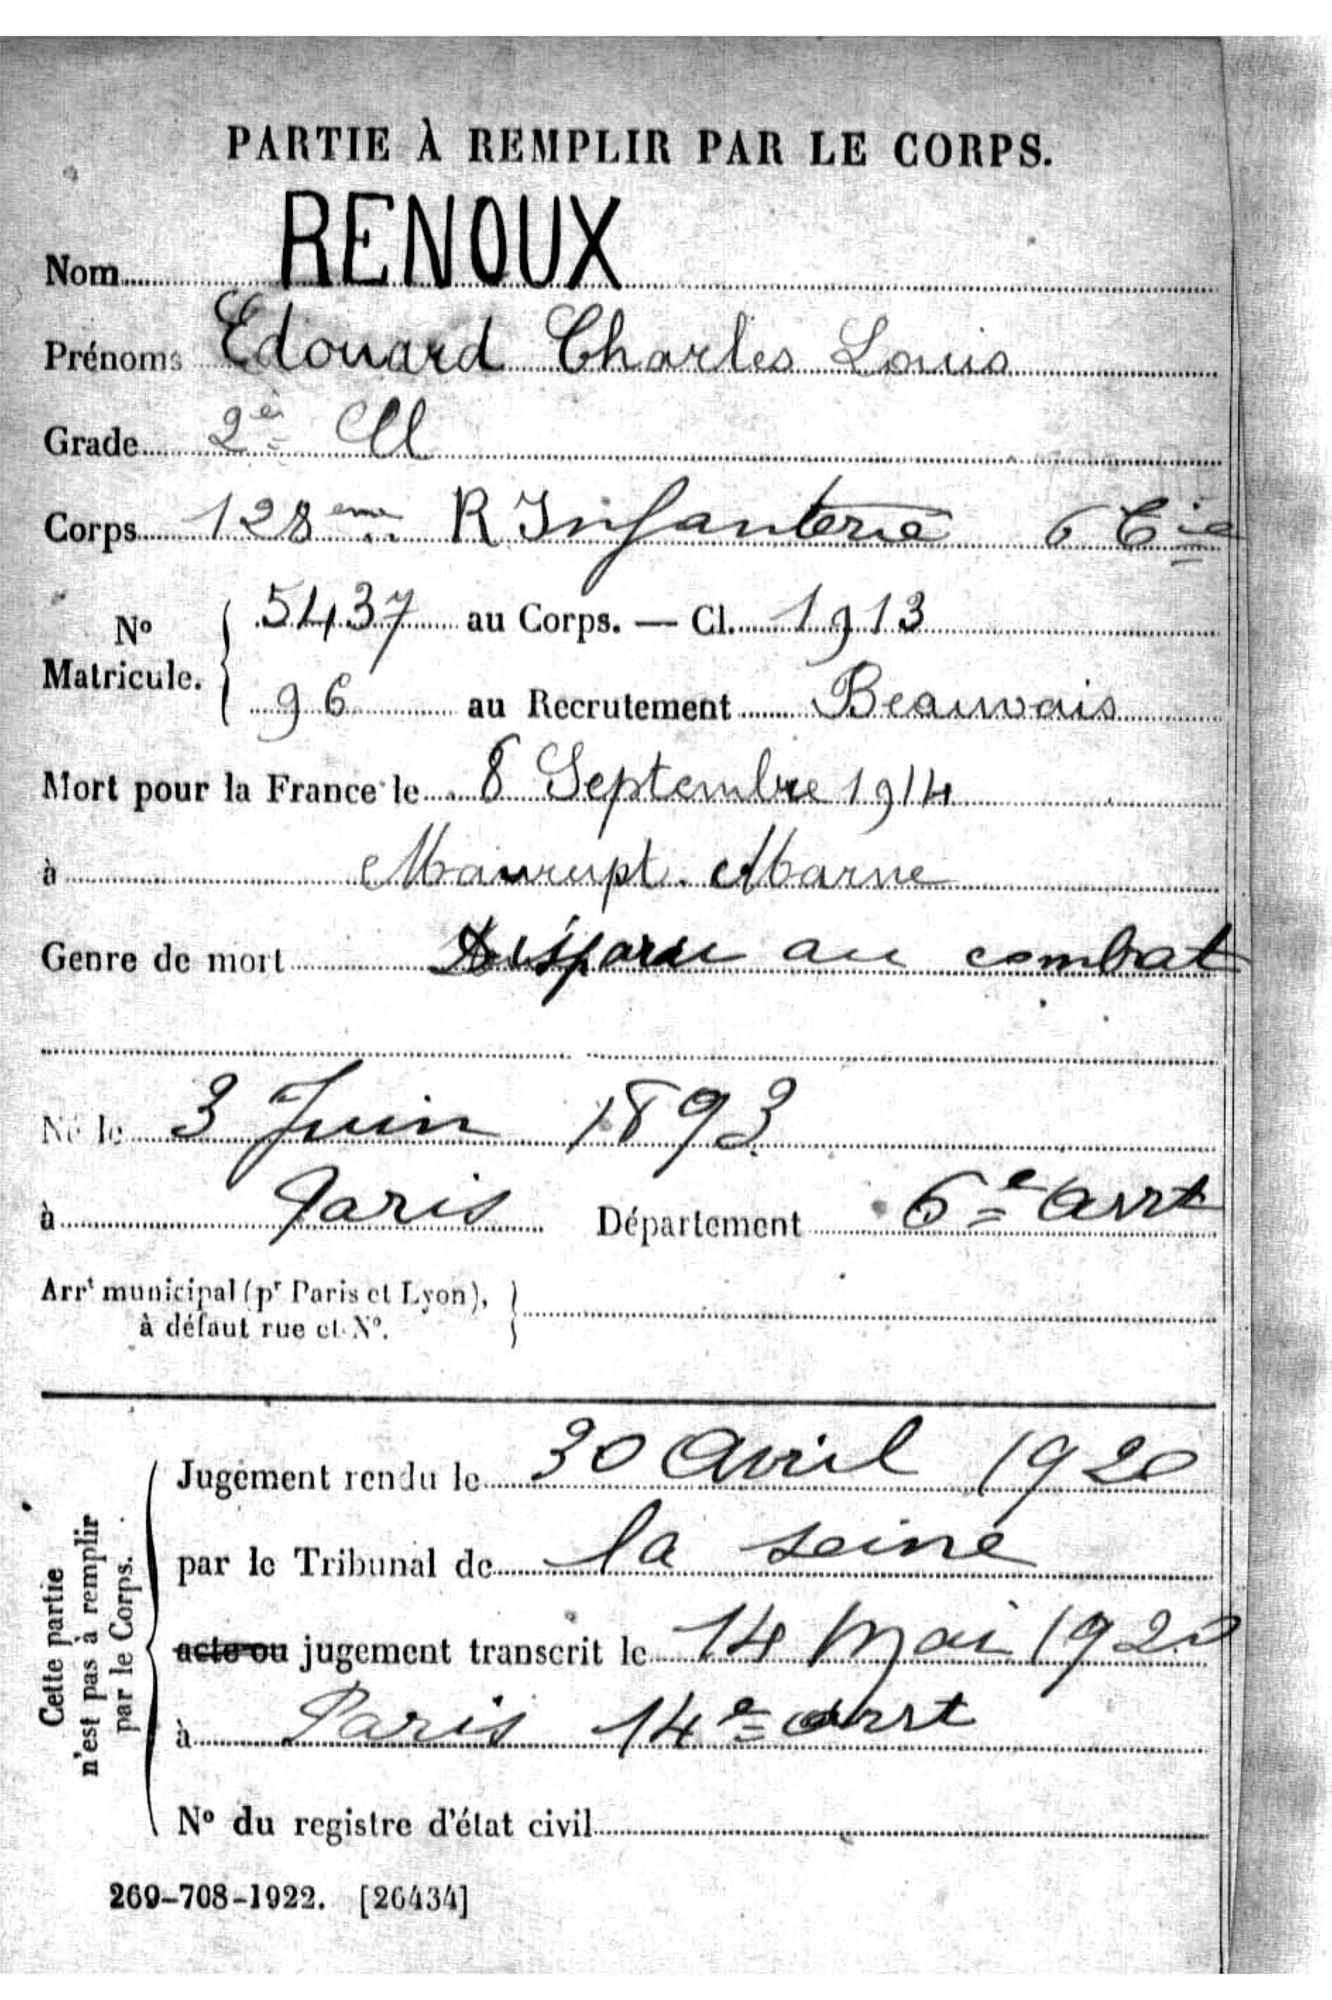 PARTIE À REMPLIR PAR LE CORPS.
Nom RENOUX
Prénoms Edouard Charles Louis
Grade 2e Cl
Corps 128eme R Infanterie 6 Cie
No Matricule. 5437 au Corps. — Cl. 1913
96 au Recrutement Beauvais
Mort pour la France le 8 Septembre 1914
à Maurupt. Marne
Genre de mort Disparu au combat
Né le 3 Juin 1893
à Paris Département 6e arrt
Arrt municipal (pr Paris et Lyon),
à défaut rue et No.
Cette partie
n'est pas à remplir
par le Corps.
Jugement rendu le 30 Avril 1920
par le Tribunal de la seine
acte ou jugement transcrit le 14 mai 1920
à Paris 14e arrt
No du registre d'état civil
269-708-1922. [26434]